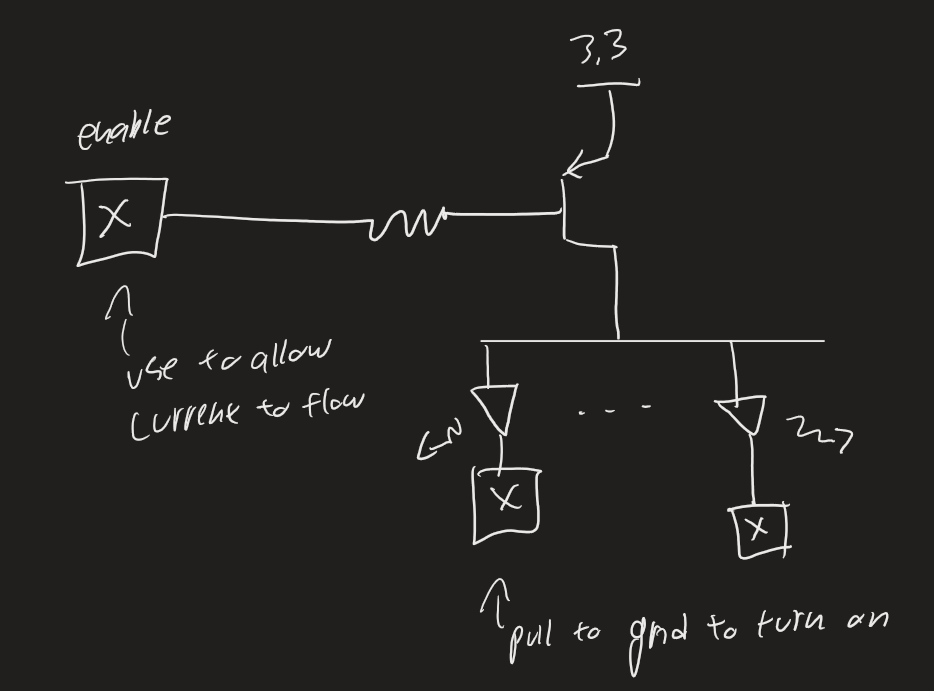 3.3
enable
X
use to allow
current to flow
. . .
X
X
pull to gnd to turn on